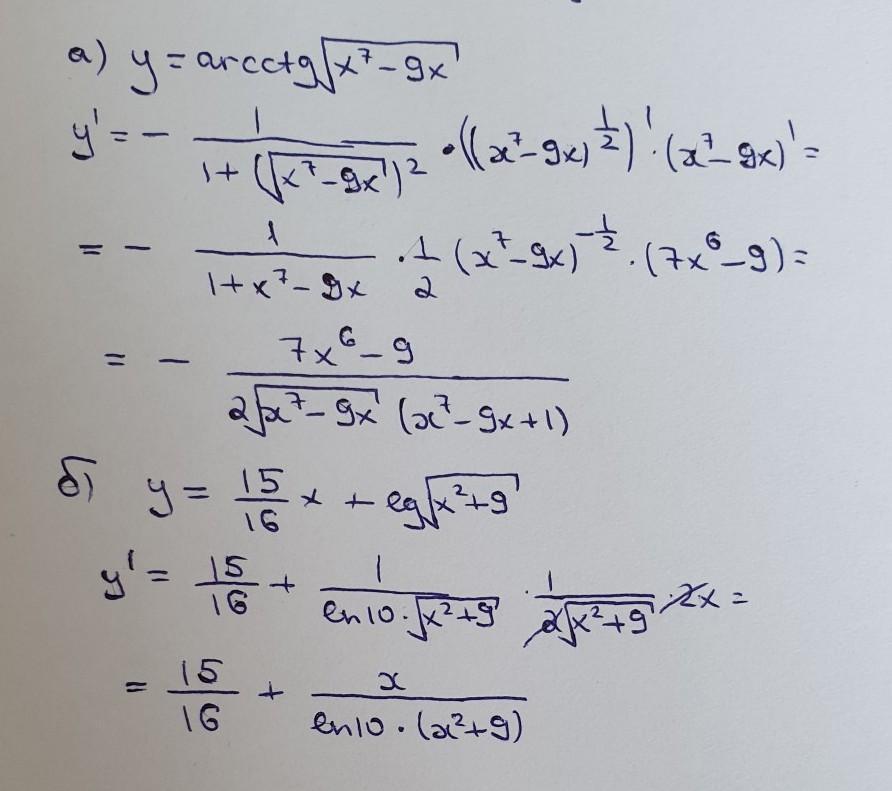 а) y = arcctg√(x⁷ - 9x)
y' = - 1/(1 + (√(x⁷ - 9x))²) · ((x⁷ - 9x)^(1/2))' · (x⁷ - 9x)' =
= - 1/(1 + x⁷ - 9x) · 1/2 (x⁷ - 9x)^(-1/2) · (7x⁶ - 9) =
= - (7x⁶ - 9)/(2√(x⁷ - 9x) (x⁷ - 9x + 1))
б) y = 15/16 x + lg√(x² + 9)
y' = 15/16 + 1/(ln10 · √(x² + 9)) · 1/(2√(x² + 9)) · 2x =
= 15/16 + x/(ln10 · (x² + 9))